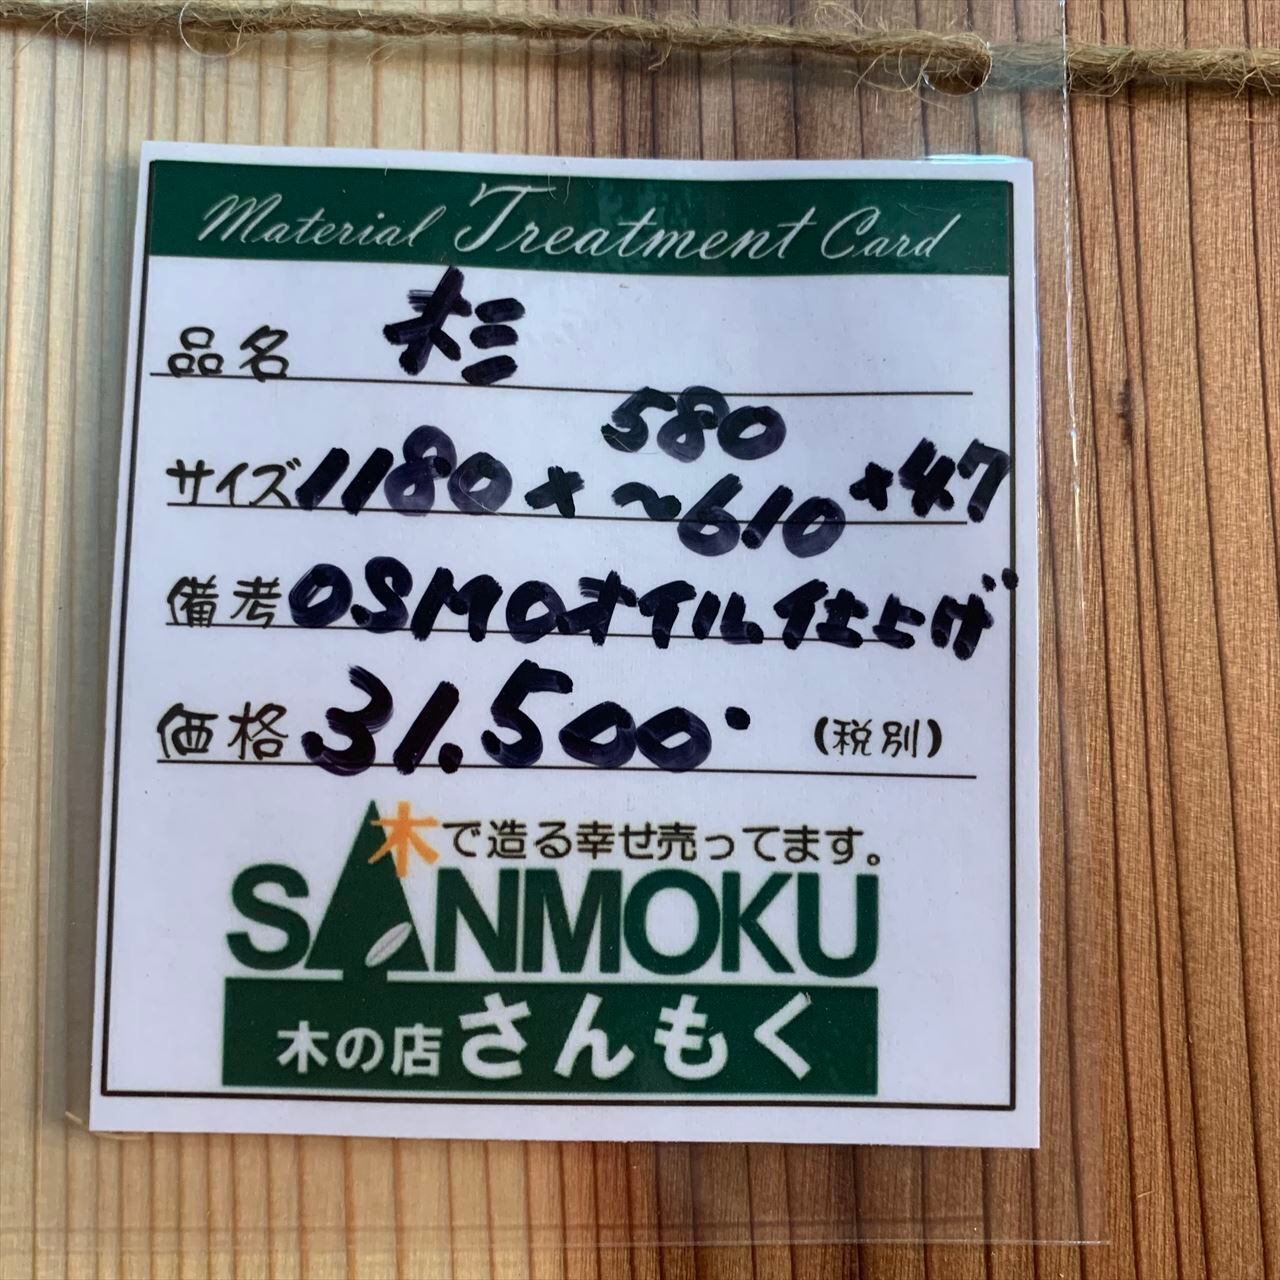 Material Treatment Card
品名 杉
サイズ 1180×580~610×47
備考 OSMOオイル仕上げ
価格 31.500. (税別)
木で造る幸せ売ってます。
SANMOKU
木の店さんもく